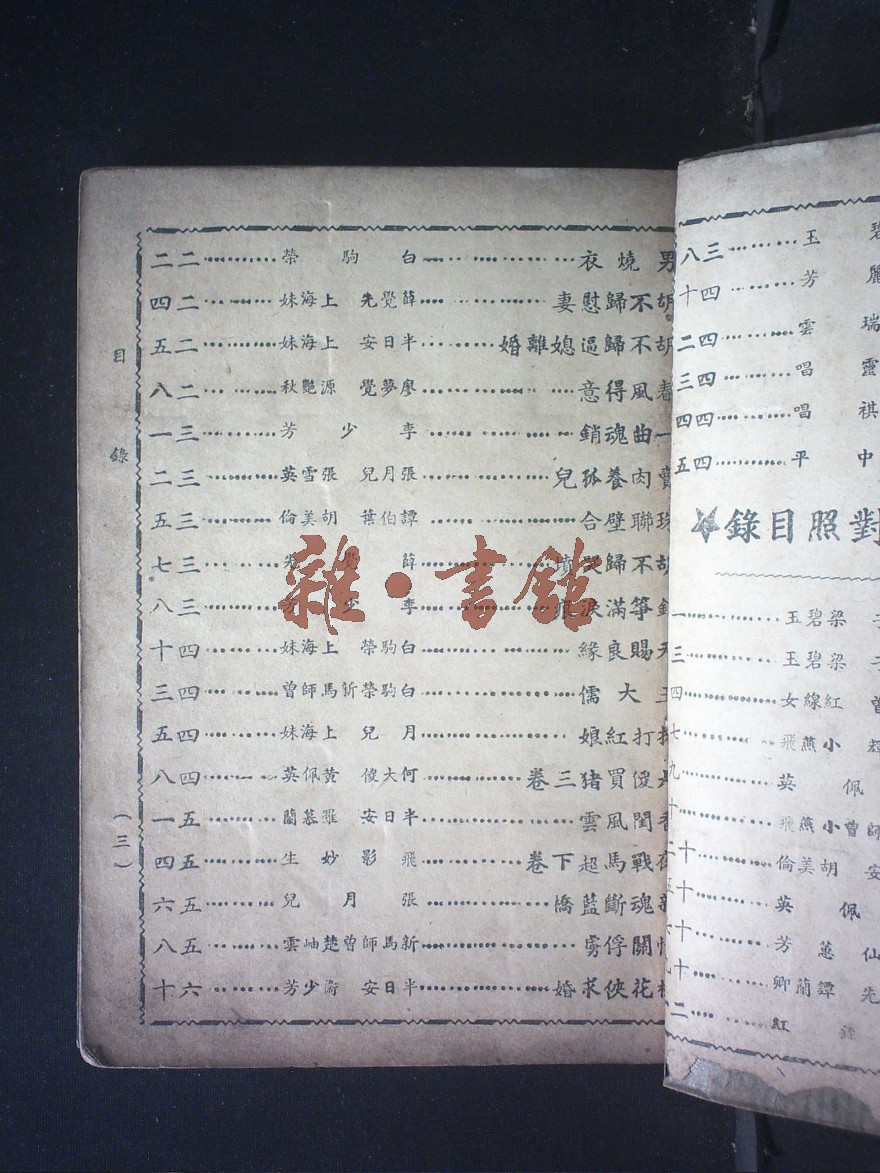 碧玉………三八
麗芳………四十
瑞雲………四二
靈唱………四三
祺唱………四四
中平………四五
對照目錄
梁碧玉………一
梁碧玉………三
紅線女………四
小燕飛………七
佩英………九
師曾小燕飛………十
安胡美倫………十二
佩英………十五
仙蕙芳………十六
先鐔蘭卿………十九
紅………二
男燒衣………白駒榮………二二
胡不歸慰妻………薛覺先 上海妹………二四
胡不歸逼媳離婚………半日安 上海妹………二五
春風得意………廖夢覺 源艷秋………二八
一曲魂銷………李少芳………三一
賣肉養孤兒………張月兒 張雪英………三二
珠聯璧合………譚伯葉 胡美倫………三五
胡不歸哭墳………薛覺先………三七
箏滿淚痕………李少芳………三八
天賜良緣………白駒榮 上海妹………四十
王大儒………白駒榮新馬師曾………四三
打紅娘………月兒 上海妹………四五
傻買猪三卷………何大傻 黃佩英………四八
香閨風雲………半日安 羅慕蘭………五一
戰馬超下卷………飛影妙生………五四
魂斷藍橋………張月兒………五六
情關俘虜………新馬師曾楚岫雲………五八
花俠求婚………半日安 少芳………六十
目錄
(三)
雜·書館